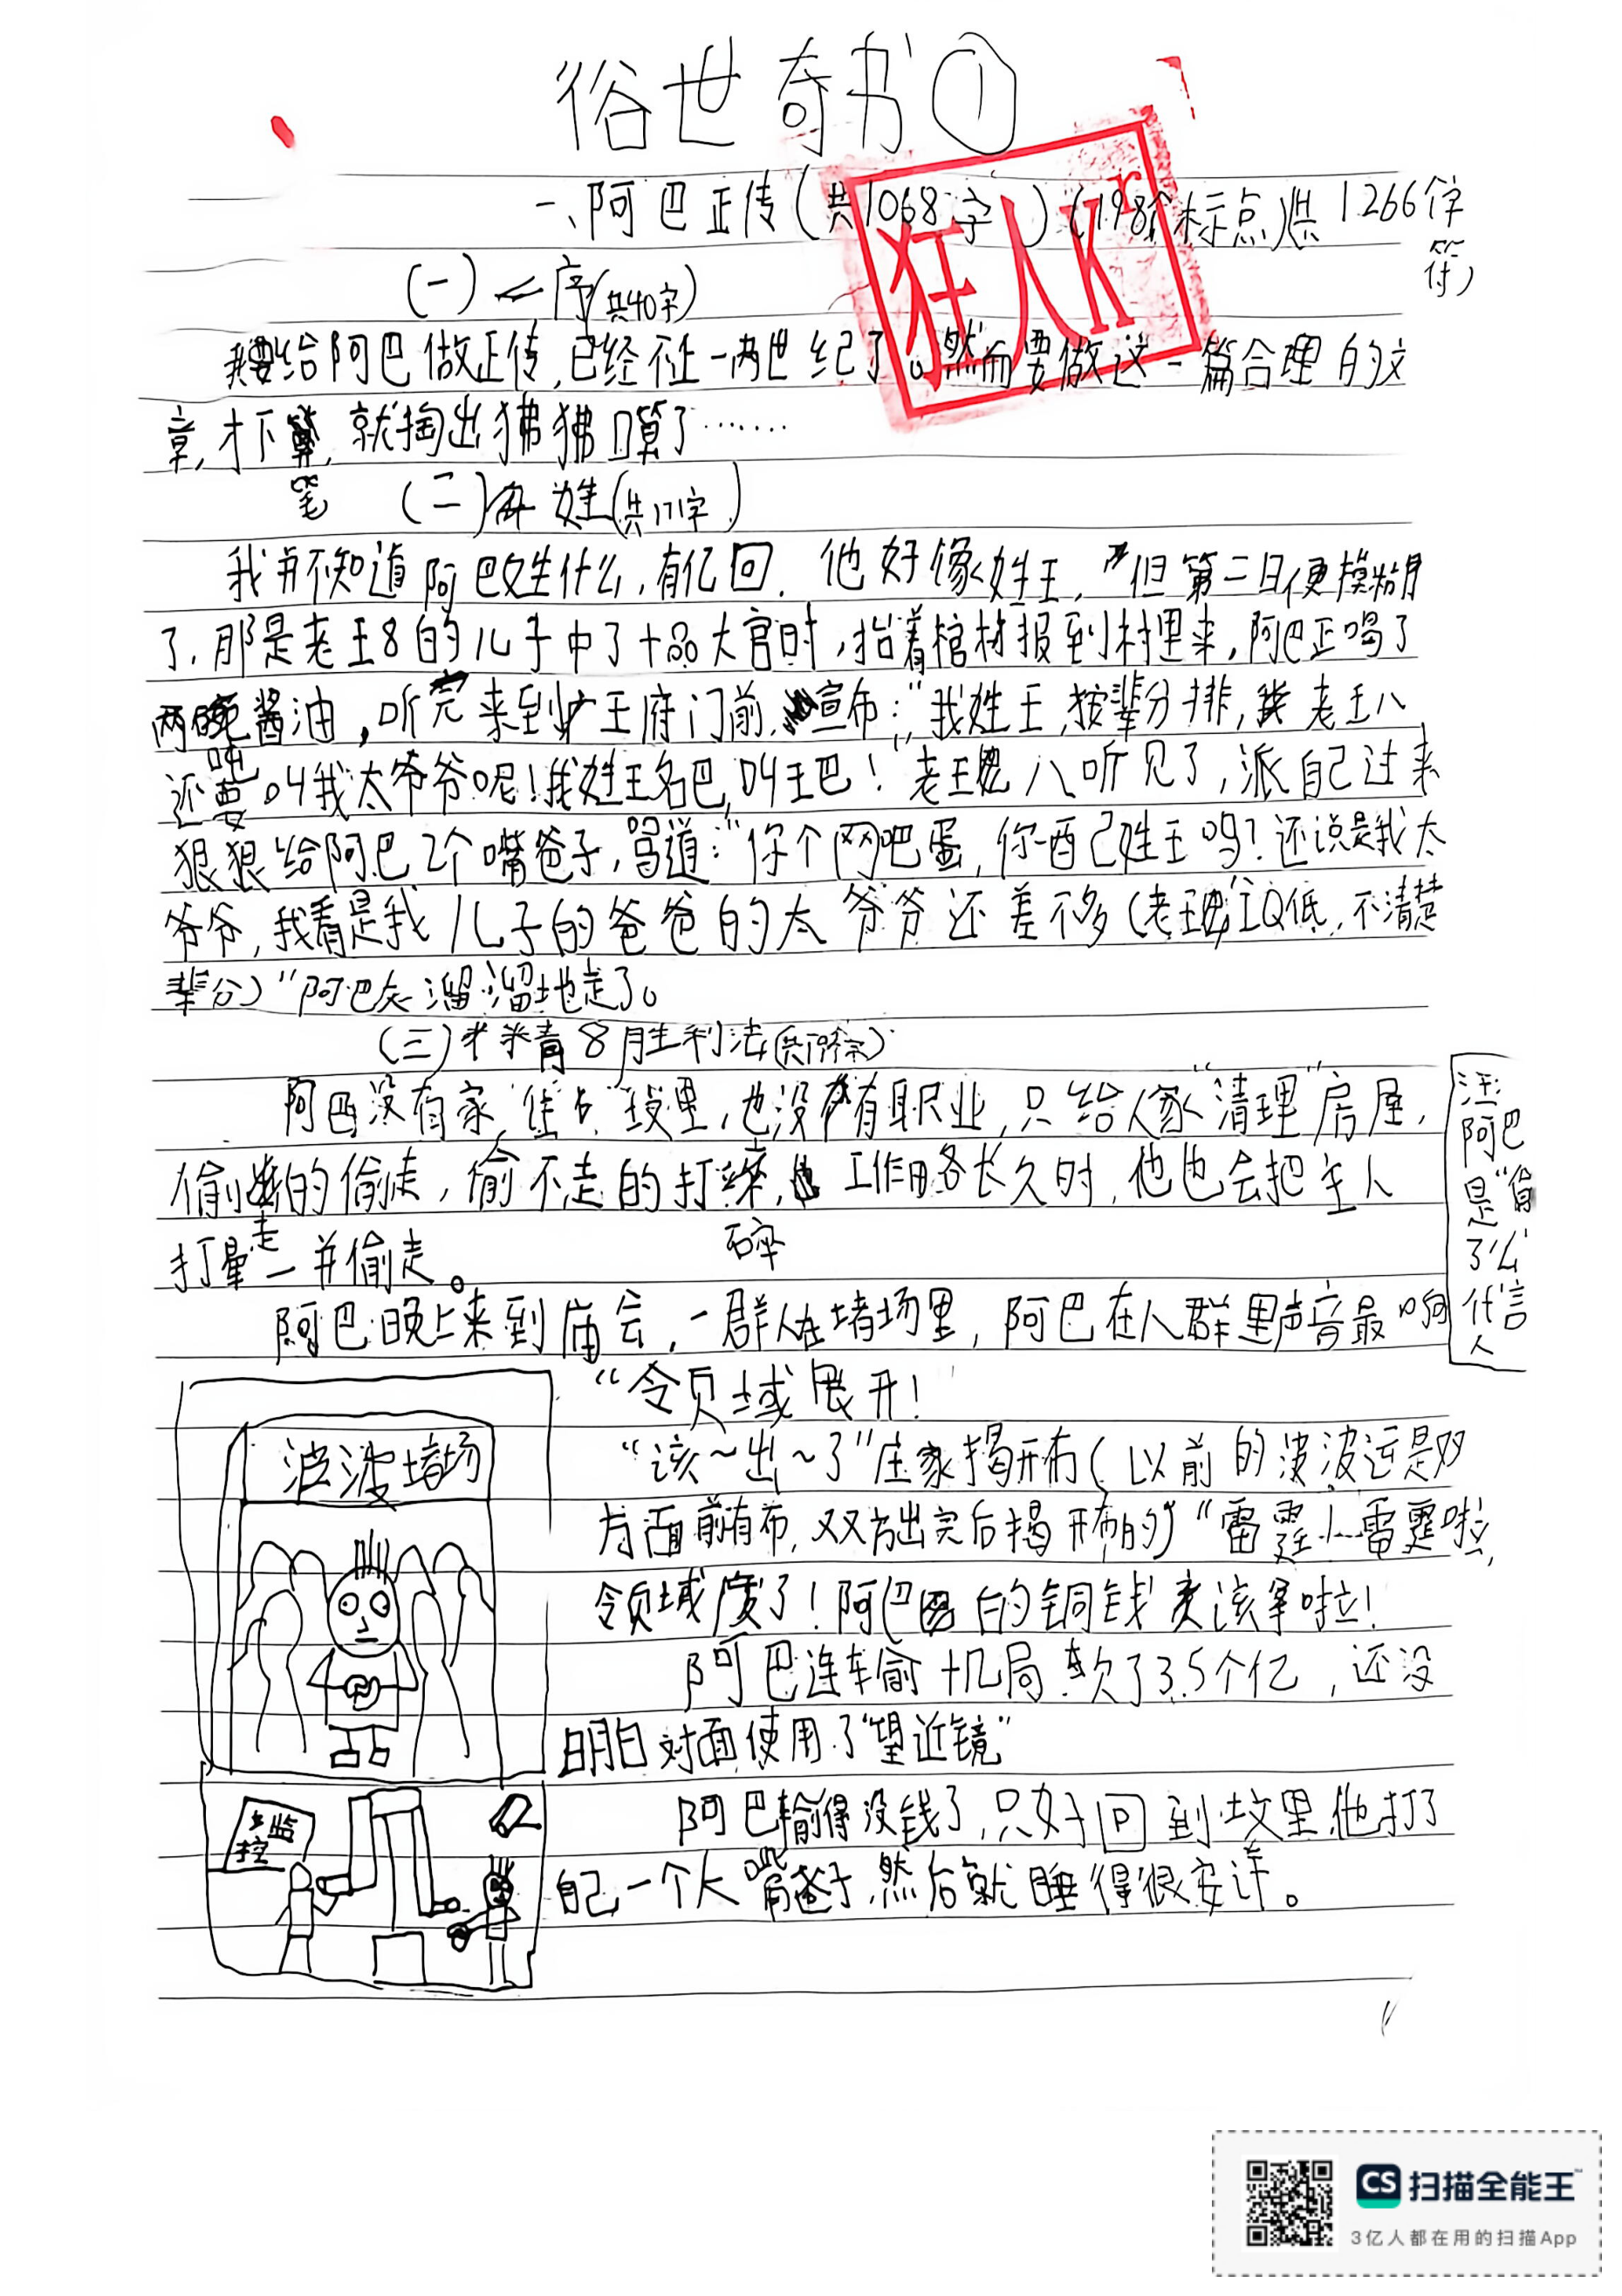 俗世奇书①
一、阿巴正传(共1068字)(198个标点)(共1266个字符)
狂人K
(一)序(共40字)
我要给阿巴做正传,已经不止一两世纪了。然而要做这一篇合理的文
章,才下笔,就掏出狒狒口算了……
(二)姓(共171字)
我并不知道阿巴姓什么,有亿回,他好像姓王,但第二日便模糊
了,那是老王8的儿子中了十品大官时,抬着棺材报到村里来,阿巴正喝了
两吨酱油,听完来到王府门前,宣布:“我姓王,按辈分排,老王八
还要叫我太爷爷呢!我姓王名巴,叫王巴!”老王八听见了,派自己过来
狠狠给阿巴2个嘴爸子,骂道:“你个网吧蛋,你酉己姓王吗?还说是我太
爷爷,我看是我儿子的爸爸的太爷爷还差不多(老王IQ低,不清楚
辈分)”阿巴灰溜溜地走了。
(三)青8月生利法
阿巴没有家,住占坟里,也没有职业,只给人家“清理”房屋,
偷走的偷走,偷不走的打碎,工作略长久时,他也会把主人
打晕一并偷走。
阿巴晚上来到庙会,一群人在堵场里,阿巴在人群里声音最响
注:阿巴是“偷了么”代言人
“令页域展开!”
“该~出~了”庄家揭开布(以前的波波运是双
方面前有布,双方出完后揭开布的)“雷霆小雷霆啦,
令页域废了!阿巴的铜钱该拿啦!
阿巴连车俞十几局欠了3.5个亿,还没
明白对面使用了“望近镜”
阿巴输得没钱了,只好回到坟里他打了
自己一个大嘴爸子,然后就睡得很安详。
波波堵场
监控
CS 扫描全能王
3亿人都在用的扫描App